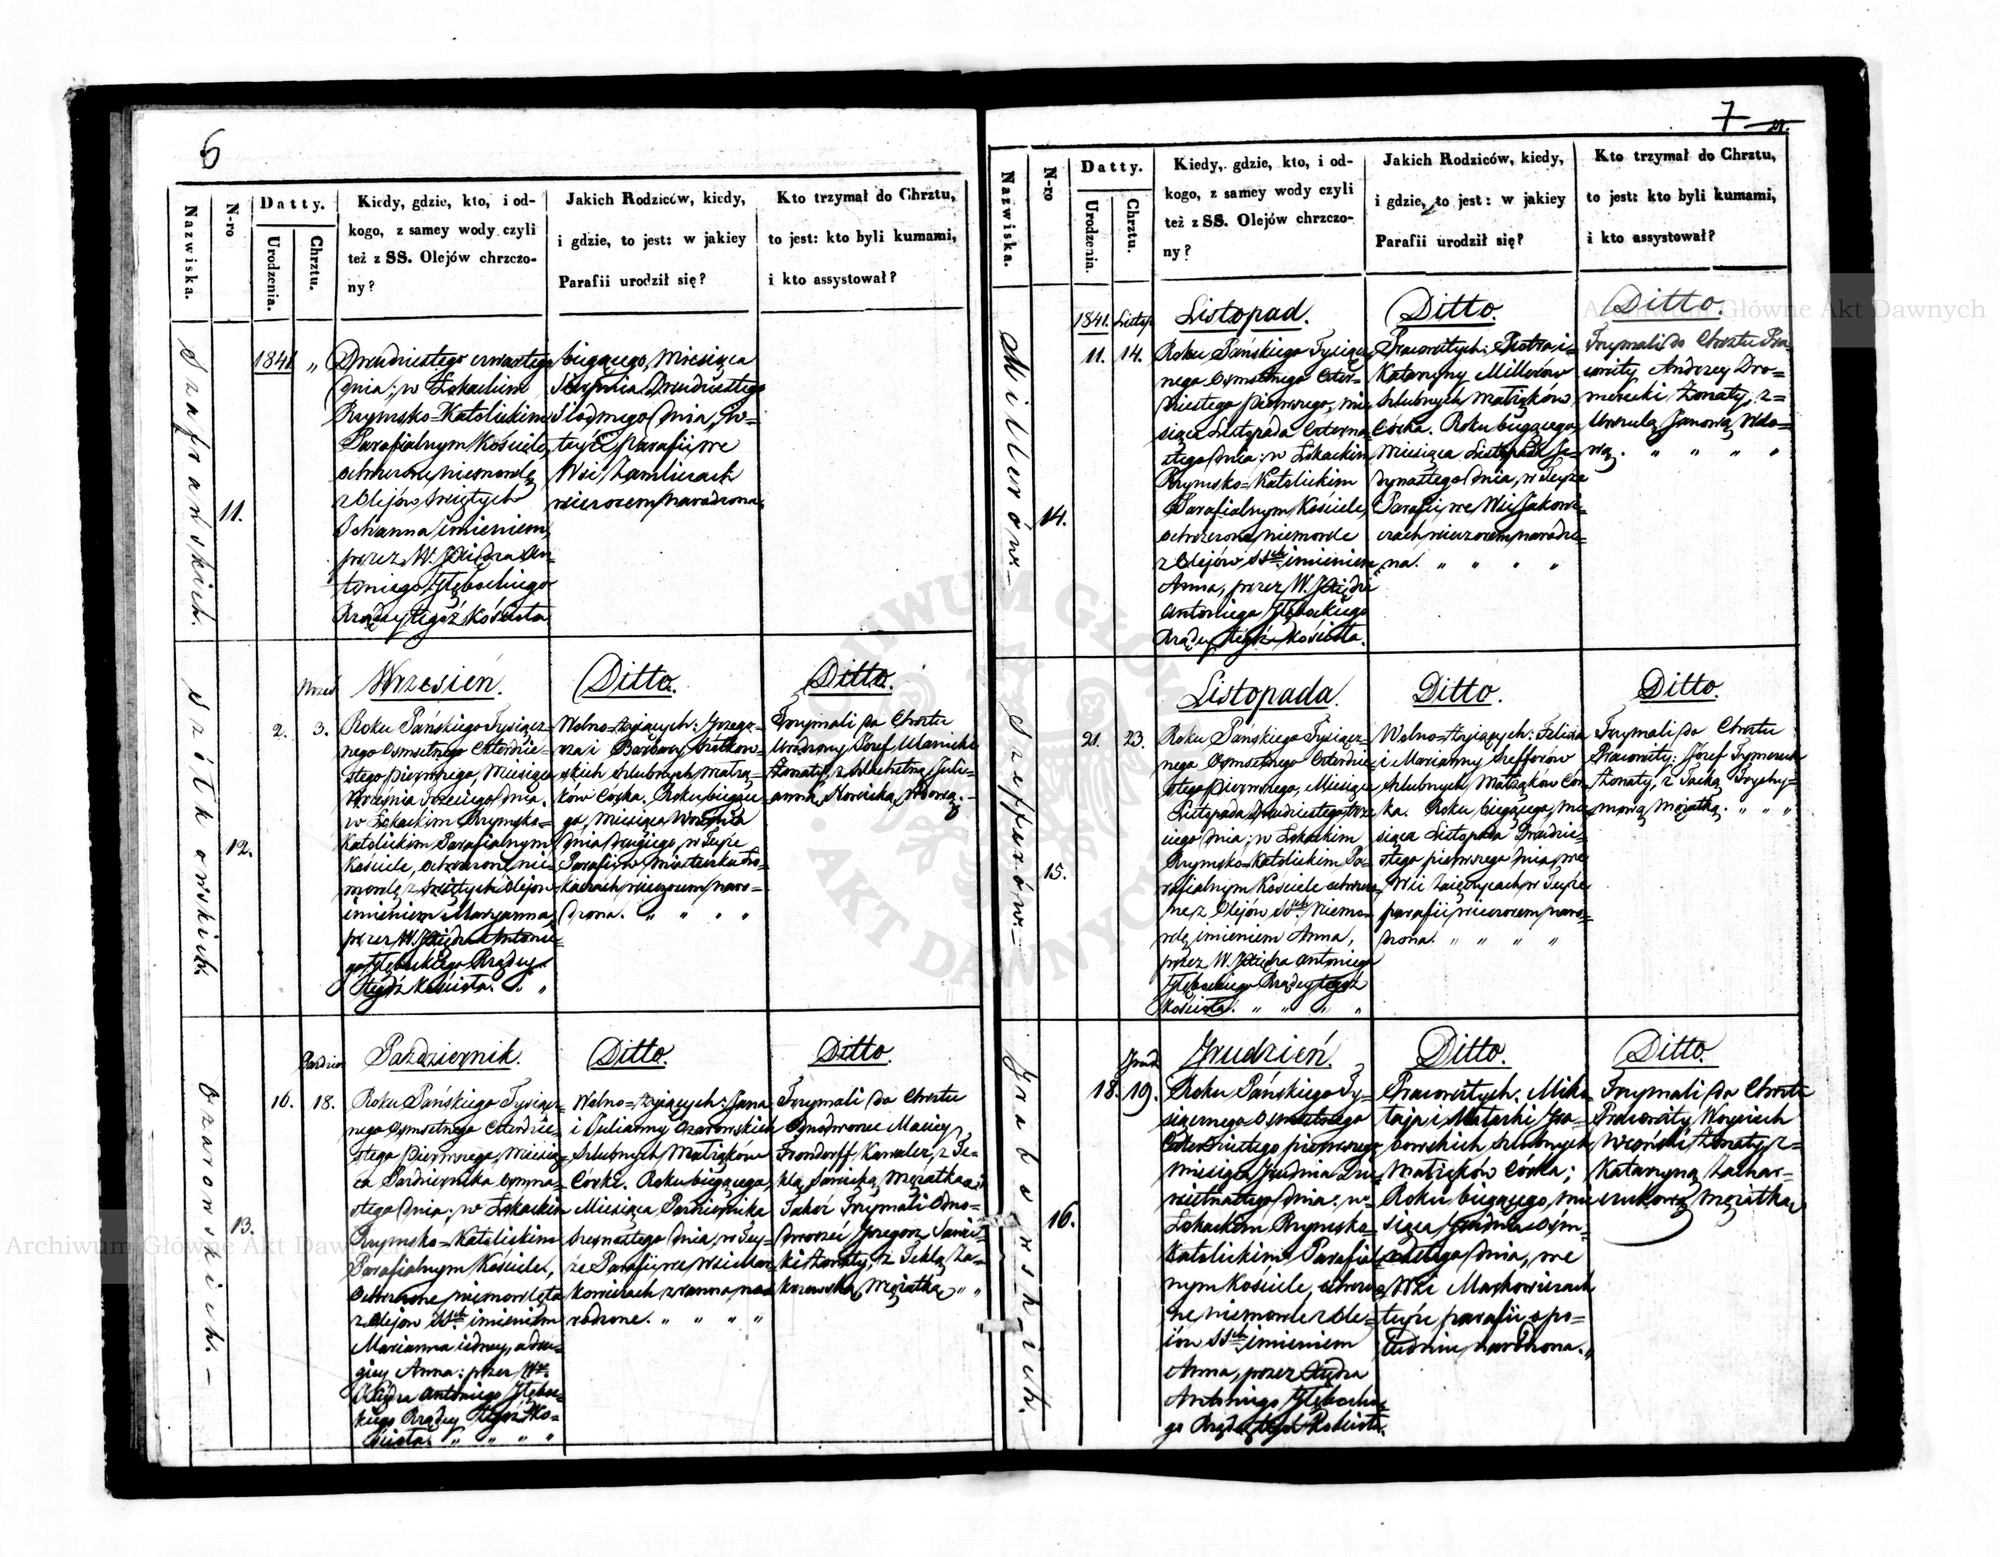 6
Nazwiska.
N-ro
Datty.
Urodzenia.
Chrztu.
Kiedy, gdzie, kto, i od-
kogo, z samey wody czyli
też z SS. Olejów chrzczo-
ny?
Jakich Rodziców, kiedy,
i gdzie, to jest: w jakiey
Parafii urodził się?
Kto trzymał do Chrztu,
to jest: kto byli kumami,
i kto assystował?
Szafrańskich.
11.
1841.
"
Dwudziestego czwartego
dnia; w Łokackim
Rzymsko-Katolickim
Parafialnym Kościele,
ochrzczone niemowlę
z Olejów Świętych
Johanna imieniem,
przez W. Xiędza An-
toniego Głębockiego
Rządcy tegóż Kościoła
bieżącego, Miesiąca
Sierpnia Dwudziestego
siódmego dnia, w-
teyże Parafii, we
Wsi Zamliczach
wieczorem narodzona.
Szółkowskich.
12.
2.
3.
Wrzesień.
Roku Pańskiego Tysiącz-
nego Osmsetnego Czterdzie-
stego pierwszego, Miesiąca
Września Trzeciego dnia.
w Łokackim Rzymsko-
Katolickim Parafialnym
Kościele, ochrzczone nie-
mowlę z Świętych Olejów
imieniem Maryanna,
przez W. Xiędza Antonie-
go Głębockiego Rządcy
tegóż Kościoła. " "
Ditto.
Wolno-żyjących: Grzego-
rza i Barbary Szółkow-
skich ślubnych małżą-
ków Córka. Roku bieżące
go, Miesiąca Września
dnia Drugiego, w Teyże
Parafii, w Miasteczku Ło-
kaczach wieczorem naro-
dzona. " " " "
Ditto.
Trzymali do Chrztu
Urodzony Józef
żonaty, z Szlachetną Juli-
anną wdową.
Ozarowskich.
13.
16.
18.
Październik.
Roku Pańskiego Tysiącz-
nego Osmsetnego Czterdzie-
stego pierwszego, Miesią-
ca Października Osmna-
stego dnia; w Łokackim
Rzymsko-Katolickim
Parafialnym Kościele,
Ochrzczone niemowlęta
z Olejów SSch imieniem
Marianna iedney, a dru-
giey Anna: przez W.
Xiędza Antoniego Głęboc-
kiego Rządcy tegóż Ko-
ścioła. " " " "
Ditto.
Wolno-żyjących: Jana
i Julianny Ozarowskich
ślubnych Małżąków
Córki. Roku bieżącego,
Miesiąca Października
Szesnastego dnia, w Tey-
że Parafii, we Wsi Mar-
kowiczach zrana na-
rodzone. " " " "
Ditto.
Trzymali do Chrztu
Maciey
Kawaler, z Te-
klą mężatką. i
Takoż Trzymali Odno-
dworzec Grzegorz
żonaty, z Teklą Za-
mężatką " "
7
Nazwiska.
N-ro
Datty.
Urodzenia.
Chrztu.
Kiedy, gdzie, kto, i od-
kogo, z samey wody czyli
też z SS. Olejów chrzczo-
ny?
Jakich Rodziców, kiedy,
i gdzie, to jest: w jakiey
Parafii urodził się?
Kto trzymał do Chrztu,
to jest: kto byli kumami,
i kto assystował?
Millerów.
14.
1841.
Listop
11.
14.
Listopad.
Roku Pańskiego Tysiącz-
nego Osmsetnego Czter-
dziestego pierwszego, Mie-
siąca Listopada Czterna-
stego dnia: w Łokackim
Rzymsko-Katolickim
Parafialnym Kościele,
ochrzczone niemowle
z Olejów SSch imieniem
Anna, przez W. Xiędza
Antoniego Głębockiego
Rządcy tegóż Kościoła.
Ditto.
Pracowitych: Piotra i
Katarzyny Millerów
ślubnych Małżąków,
Córka. Roku bieżącego
Miesiąca Listopada Je-
dynastego dnia, w Teyże
Parafii, we Wsi Jakowi-
czach wieczorem narodzo-
na. " " " "
Ditto.
Trzymali do Chrztu Pra-
cowity Andrzey Dro-
żonaty, z-
Urszulą Janową wdo-
wą. " " " "
Szefferów.
15.
21.
23.
Listopada.
Roku Pańskiego Tysiącz-
nego Osmsetnego Czterdzie-
stego pierwszego, Miesiąca
Listopada Dwudziestego trze-
ciego dnia; w Łokackim
Rzymsko-Katolickim Pa-
rafialnym Kościele ochrzczo-
ne z Olejów SSch Niemo-
wlę imieniem Anna,
przez W. Xiędza Antoniego
Głębockiego Rządcy tegóż
Kościoła. " " " "
Ditto.
Wolno-żyjących: Felixa
i Marianny Szefferów
ślubnych Małżąków Cór-
ka. Roku bieżącego, Mie-
siąca Listopada Dwudzie-
stego pierwszego dnia, we
Wsi w Teyże
parafii wieczorem naro-
dzona. " " " "
Ditto.
Trzymali do Chrztu
Pracowity: Józef
żonaty, z Teklą
mężatką. " " "
Grabowskich.
16.
18.
19.
Grudzień.
Roku Pańskiego Ty-
siącznego Osmsetnego
Czterdziestego pierwszego
Miesiąca Grudnia Dzie-
wietnastego dnia: w-
Łokackim Rzymsko-
Katolickim Parafial-
nym Kościele, ochrzczo-
ne niemowle z Ole-
jów SSch imieniem
Anna, przez Xiędza
Antoniego Głębockie-
go Rządcę tegóż Kościoła.
Ditto.
Pracowitych: Miko-
łaja i Natalki Gra-
bowskich ślubnych
Małżąków Córka;
Roku bieżącego, mie-
siąca Grudnia Ośm-
nastego dnia, we
Wsi Markowiczach
teyże parafii z po-
łudnia, narodzona. "
Ditto.
Trzymali do Chrztu
Pracowity Woyciech
żonaty, z-
Katarzyną
mężatką
Archiwum Główne Akt Dawnych
Archiwum Główne Akt Dawnych
ARCHIWUM GŁÓWNE AKT DAWNYCH